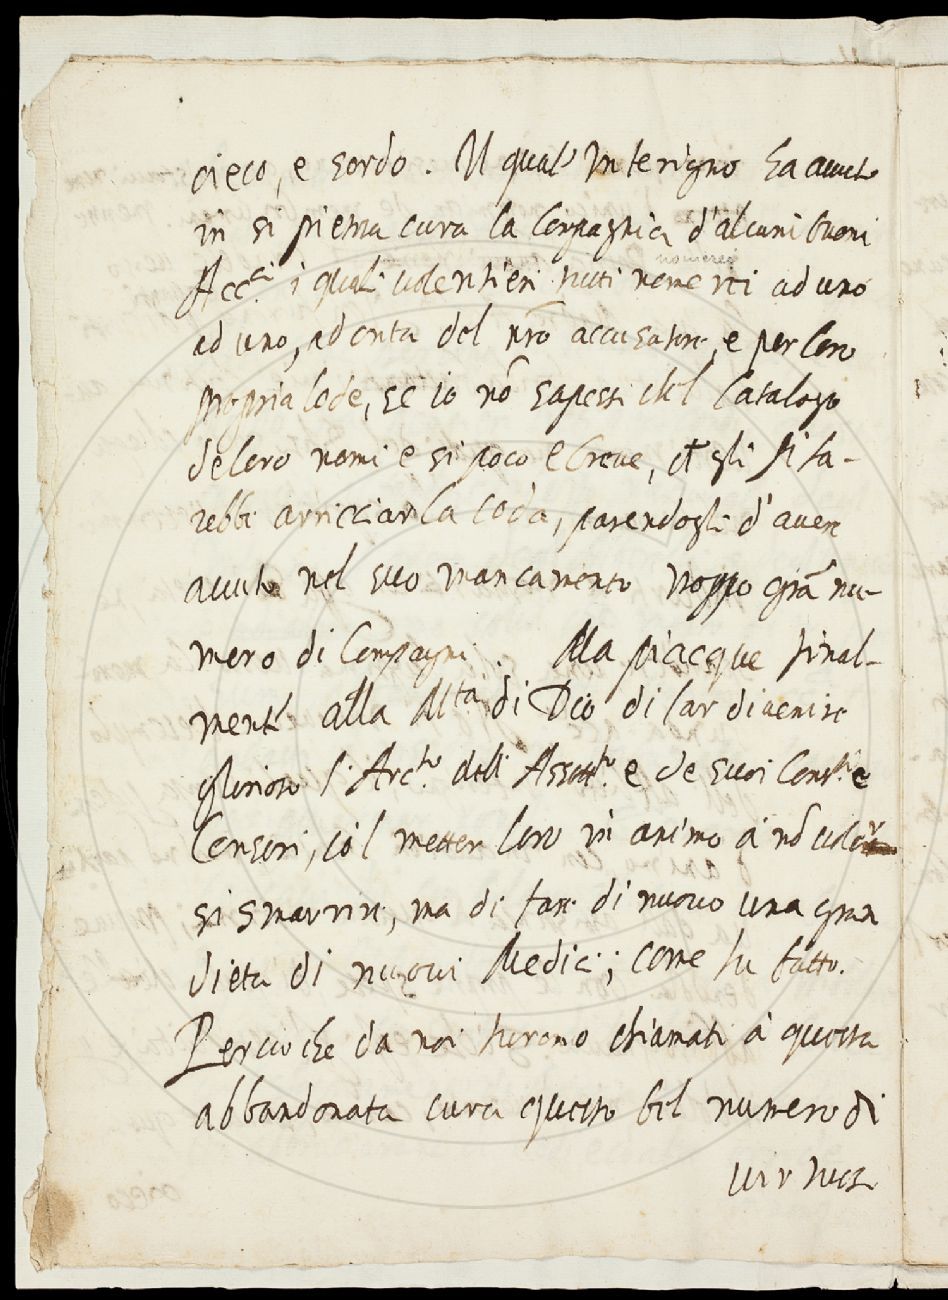 cieco, e sordo. Il qual' Interigno ha avuto
in sì pietosa cura la Compagnia d'alcuni buoni
Acc.ci i quali volentieri tutti nomerei ad uno
ad uno, ad onta del nrõ accusatore, e per loro
propria lode, se io nõ sapessi chel Catalogo
de loro nomi e sì poco e breve, ch gli si fa-
rebbe arricciar la coda, parendogli d'aver
avuto nel suo mancamento troppo grã nu-
mero di Compagni. Ma piacque final-
ment'e alla M.ta di Dio di far divenire
glorioso l'Arc.lo dell' Assett.to e de suoi Cons.ri e
Censori, col metter loro in animo di nõ voler
si smarrire, ma di fare di nuovo una gran
dieta di nuovi Medici; come fu fatto.
Percioche da noi furono chiamati à questa
abbandonata cura questo bel numero di
virtuosi